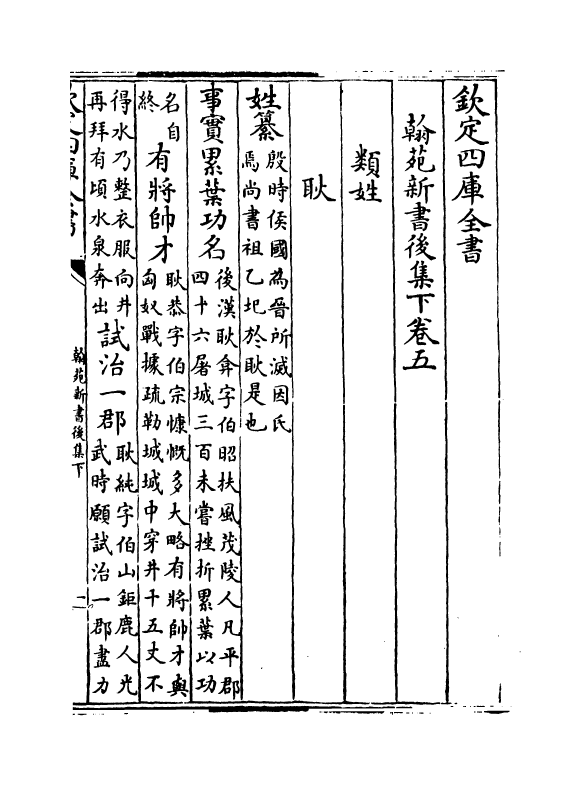 欽定四庫全書
翰苑新書後集下卷五
類姓
耿
姓纂殷時侯國為晉所滅因氏
焉尚書祖乙圯於耿是也
事實累葉功名後漢耿弇字伯昭扶風茂陵人凡平郡
四十六屠城三百未嘗挫折累葉以功
名自
終
有將帥才耿恭字伯宗慷慨多大略有將帥才與
匈奴戰據疏勒城城中穿井十五丈不
得水乃整衣服向井
再拜有頃水泉奔出
試治一郡耿純字伯山鉅鹿人光
武時願試治一郡盡力
欽定四庫全書
翰苑新書後集下
一